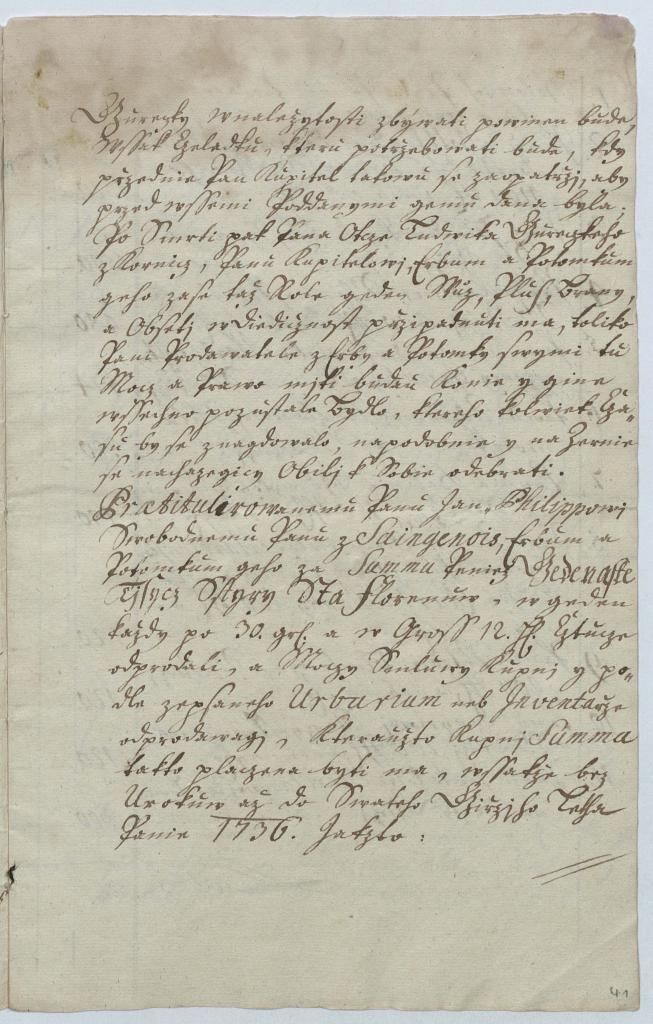 Gureczky wnależytosti zbywati powinen bude,
wssak Czeladku, kteru potrzebowati bude, kdy
przednie Pan Kupitel takowu se zaopatrzj, aby
przed wssemi Poddanymi gemu dana byla.
Po Smrti pak Pana Otcze Ludwika Gureczkeho
z Kornicz, Panu Kupitelowj, Erbum a Potomkum
geho zase taż Role geden Wuz, Pluh, Brany,
a Obsetj w Diedicznost przipadnuti ma, toliko
Pani Prodawatele z Erby a Potomky swymi tu
Mocz a Prawo mjti budau Konie y gine
wssechno pozustale Bydlo, ktereho kolwiek Cza„
su by se znagdowalo, napodobnie y na Zernie
se nachazegicy Obilj k Sobie odebrati.
Prætitulirowanemu Panu Jan Philippowj
Swobodnemu Panu z Saingenois, Erbum a
Potomkum geho za Summu Peniez Gedenaste
Tjsycz Sstyry Sta Florenuw, w geden
każdy po 30. grs. a w Gross 12. Cztucze
odprodali, a Moczy Smluwy Kupnj y po„
dle zepsaneho Urbarium neb Inventarze
odprodawagj, Kterauzto Kupnj Summa
takto placzena byti ma, wssakze bez
Urokuw aż do Swateho Girzjho Letha
Panie 1736. Jakżto:
41